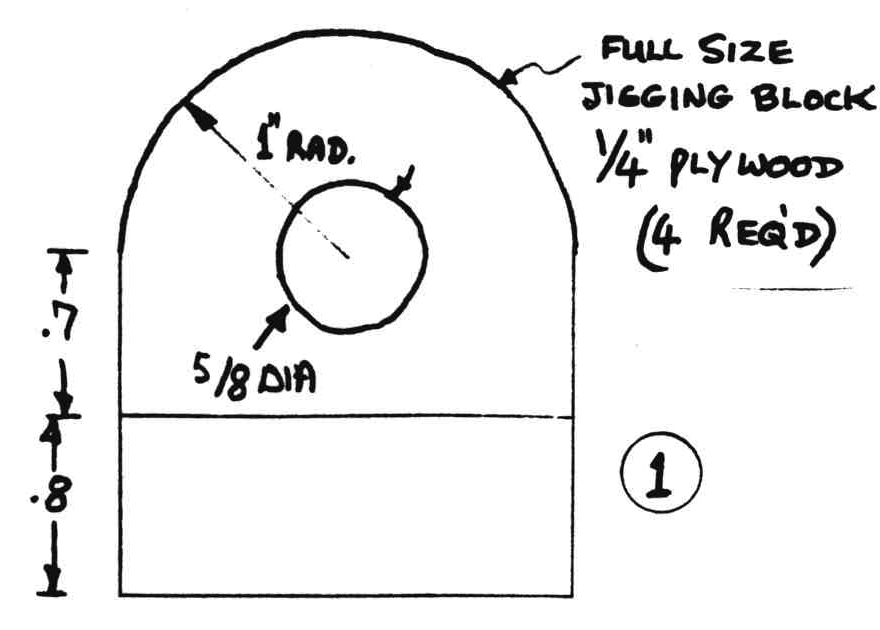 FULL SIZE
JIGGING BLOCK
1/4" PLYWOOD
(4 REQ'D)
1" RAD.
.7
5/8 DIA
.8
1